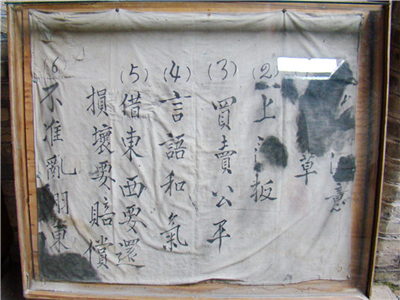 意
草
(2)上板
(3)買賣公平
(4)言語和氣
(5)借東西要還
損壞要賠償
(6)不准亂翻東